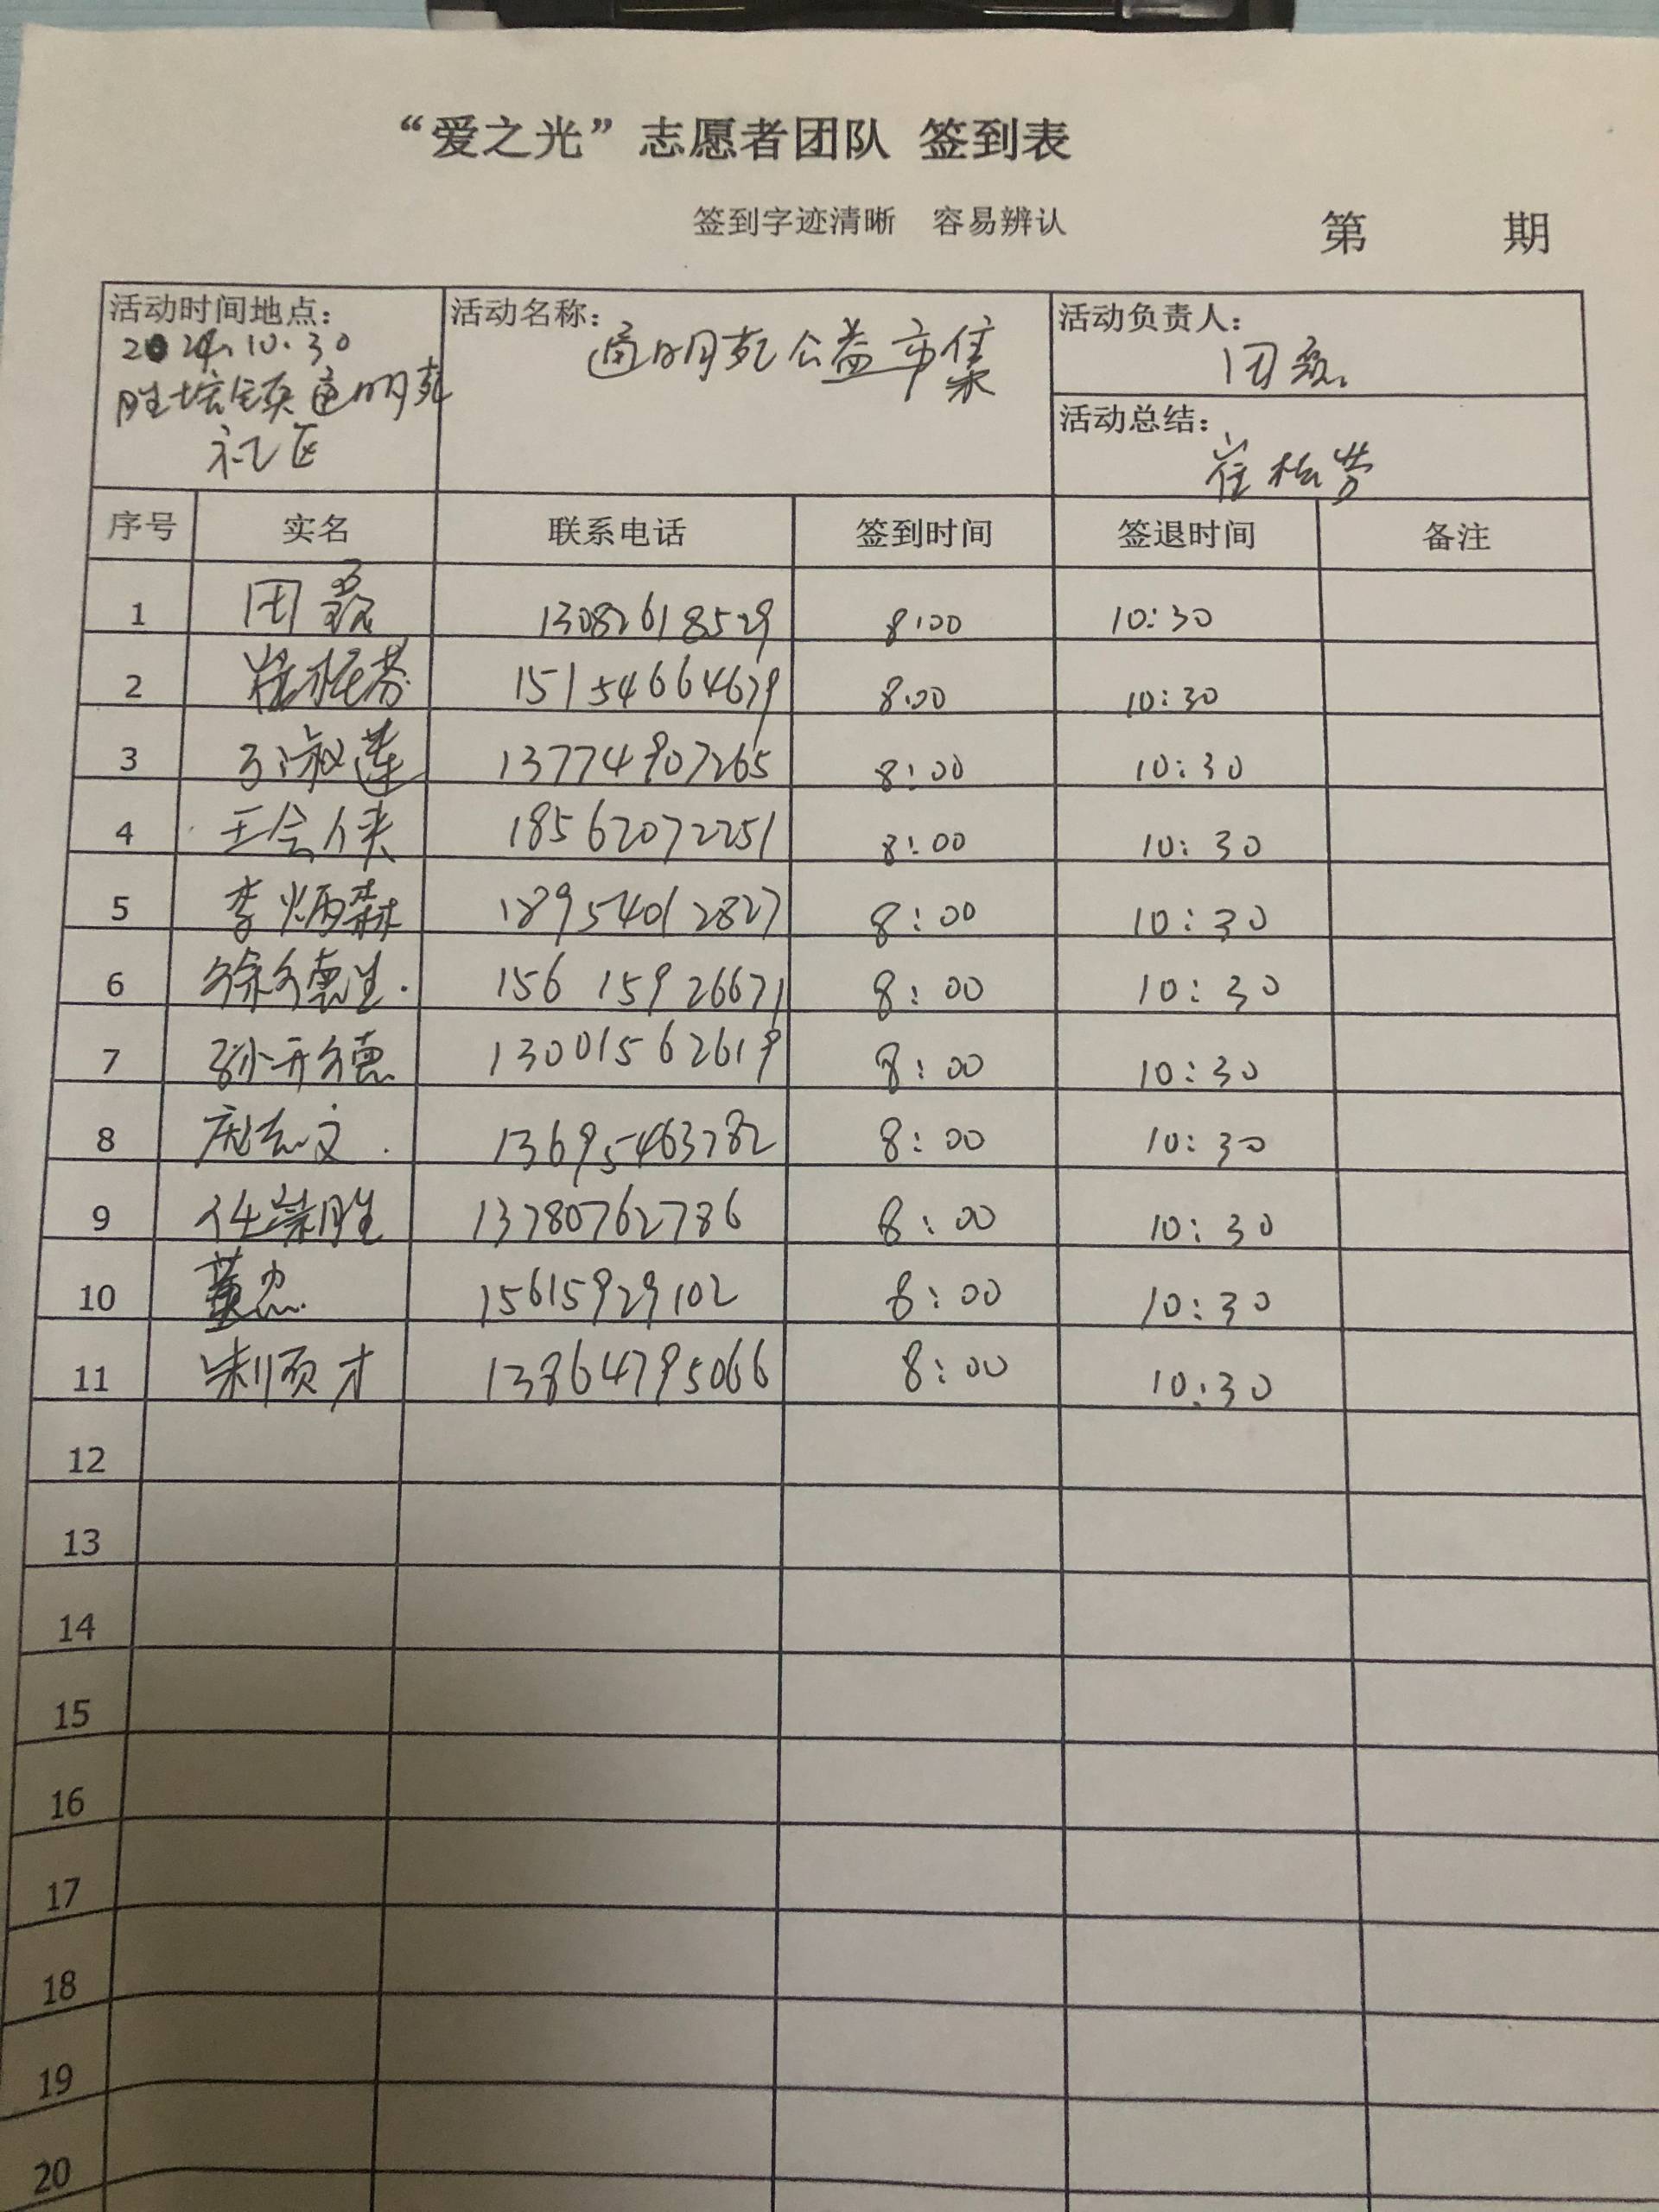 “爱之光”志愿者团队 签到表
签到字迹清晰 容易辨认
第 期
活动时间地点：
2024.10.30
胜坨镇通明苑
社区
活动名称：
通明苑公益市集
活动负责人：
田磊
活动总结：
崔松芳
序号 实名 联系电话 签到时间 签退时间 备注
1 田磊 13082618529 8:00 10:30
2 崔松芳 15154664679 8:00 10:30
3 淑莲 13774907265 8:00 10:30
4 王会侠 18562072251 8:00 10:30
5 李炳森 18954012827 8:00 10:30
6 徐德生 156 15926671 8:00 10:30
7 孙开德 13001562619 8:00 10:30
8 志文 13695463782 8:00 10:30
9 任崇胜 13780762786 8:00 10:30
10 董忠 15615929102 8:00 10:30
11 朱顺才 13864795066 8:00 10:30
12
13
14
15
16
17
18
19
20